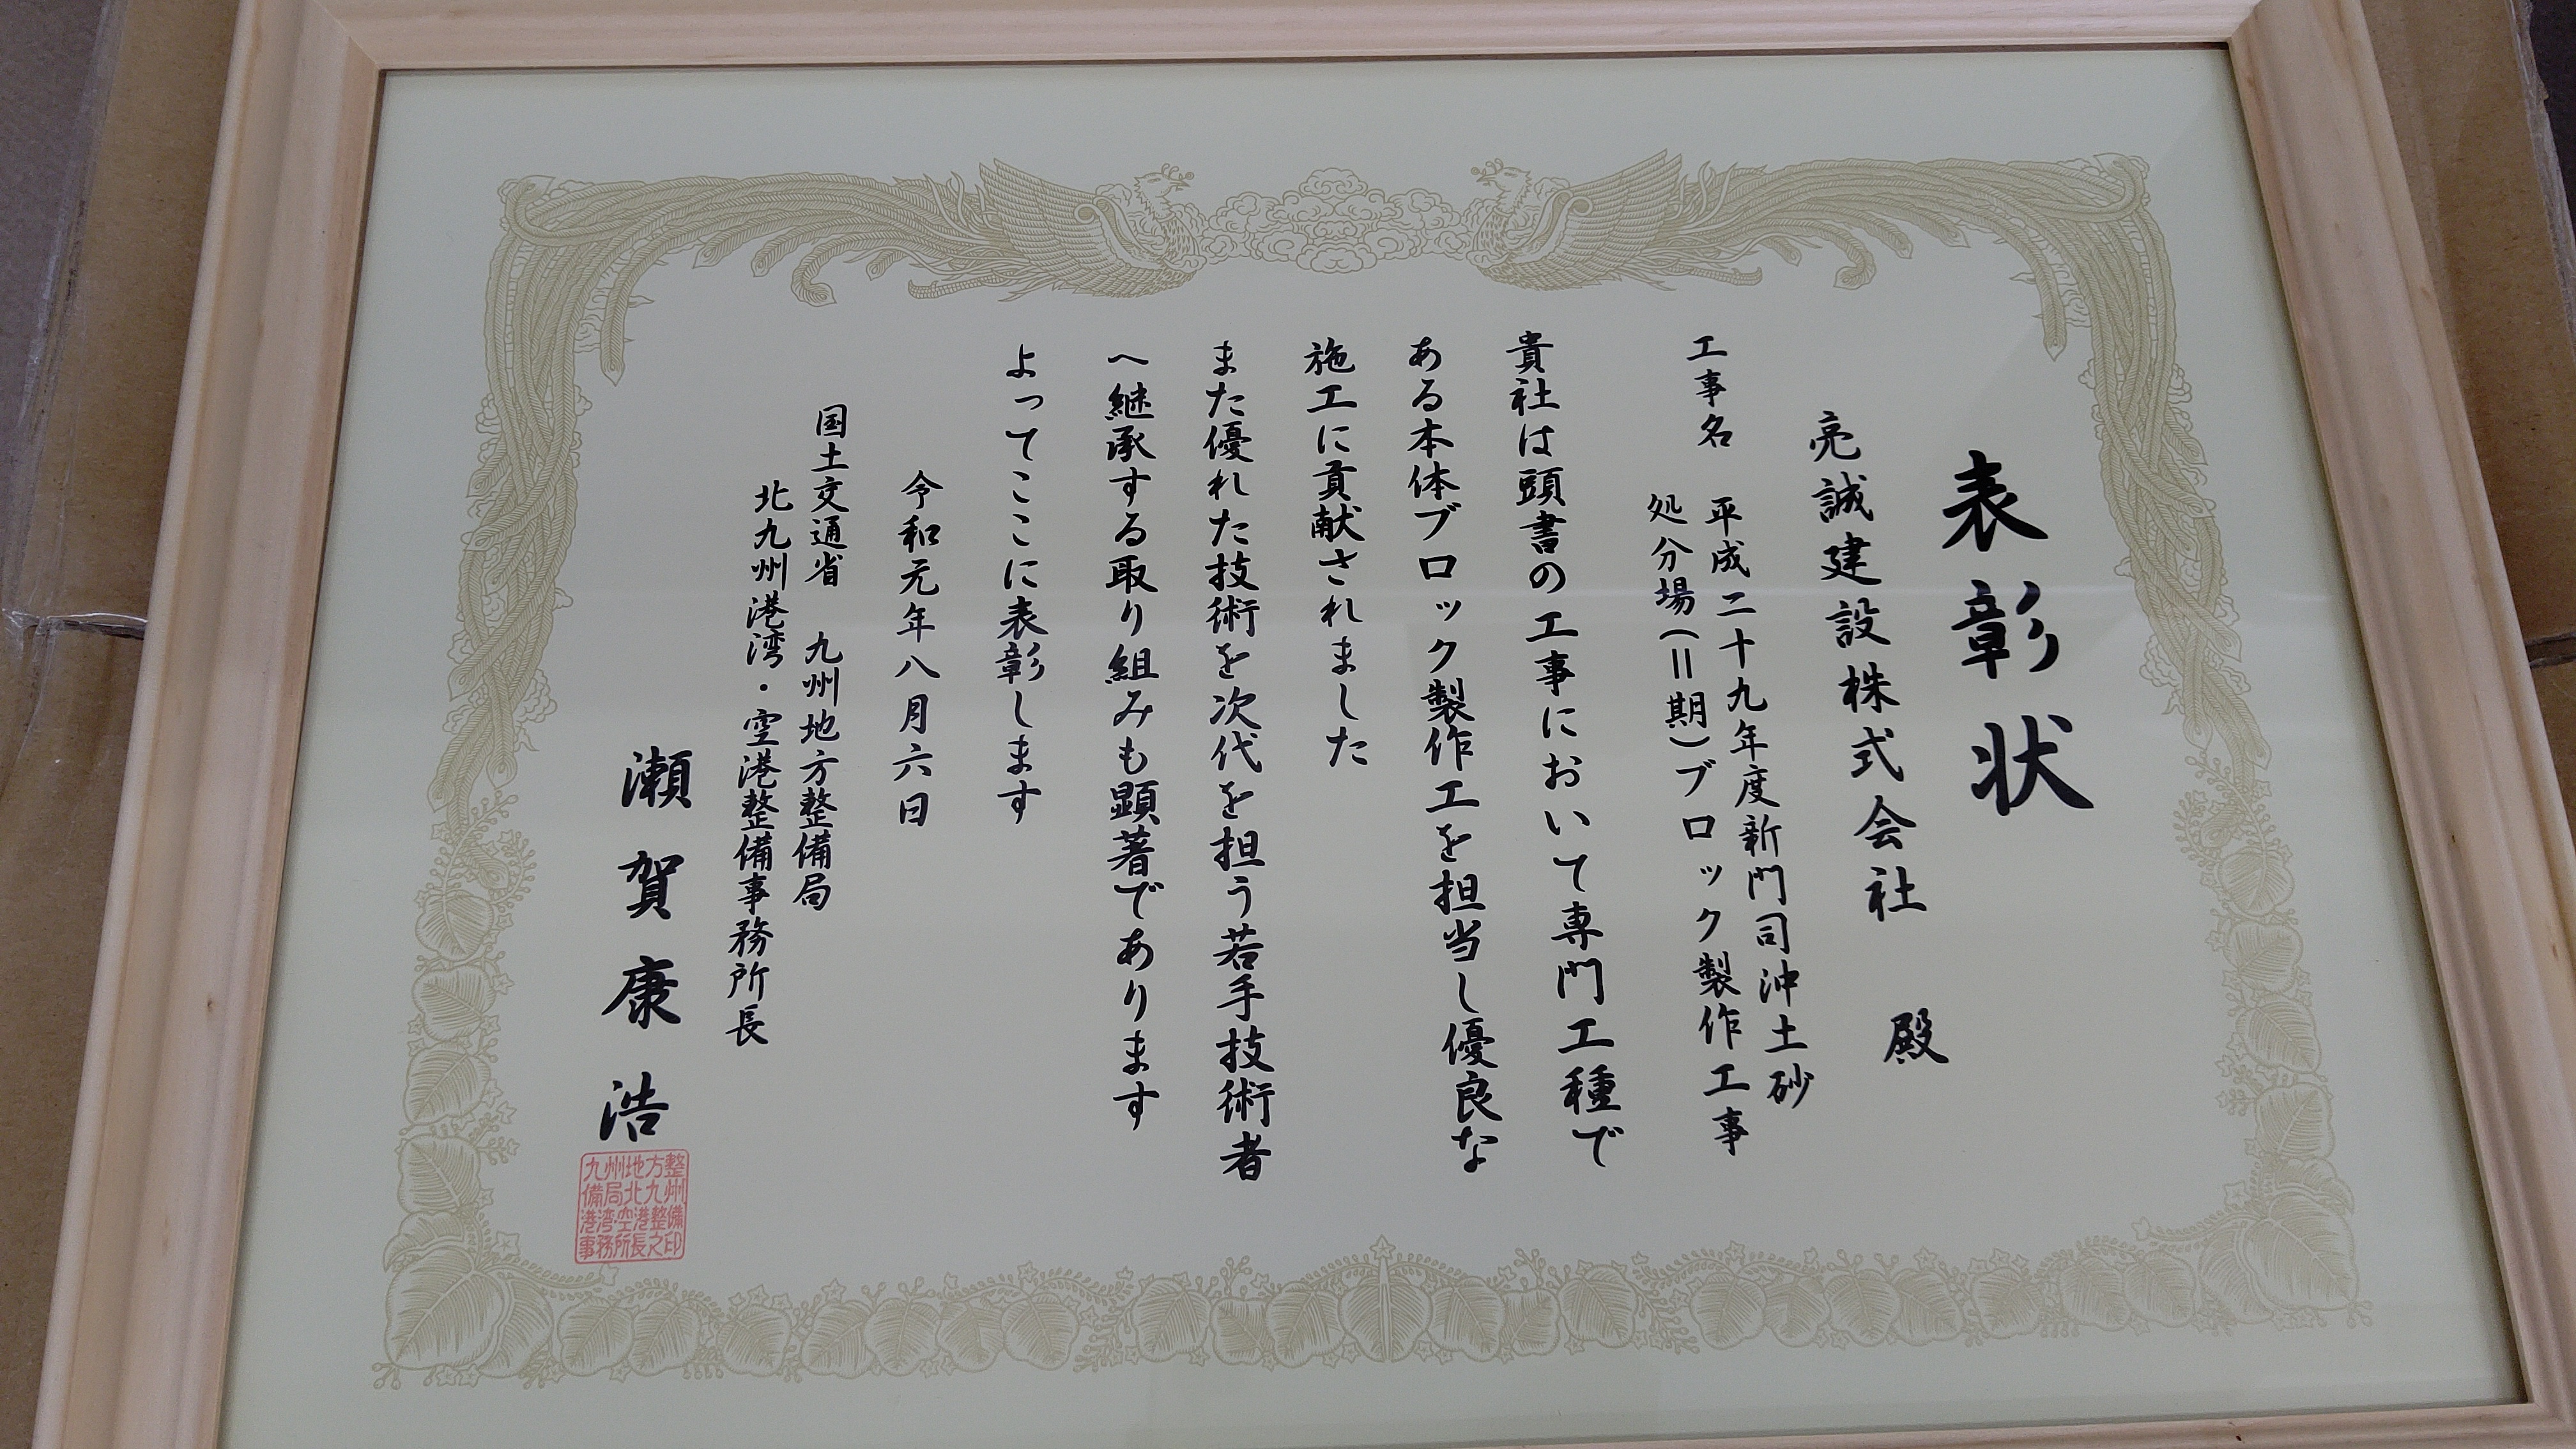 表彰状
亮誠建設株式会社　殿
工事名　平成二十九年度新門司沖土砂
処分場（Ⅱ期）ブロック製作工事
貴社は頭書の工事において専門工種で
ある本体ブロック製作工を担当し優良な
施工に貢献されました
また優れた技術を次代を担う若手技術者
へ継承する取り組みも顕著であります
よってここに表彰します
令和元年八月六日
国土交通省　九州地方整備局
北九州港湾・空港整備事務所長
瀬賀康浩
九州地方整
備局北九州
港湾・空港整備
事務所長之印